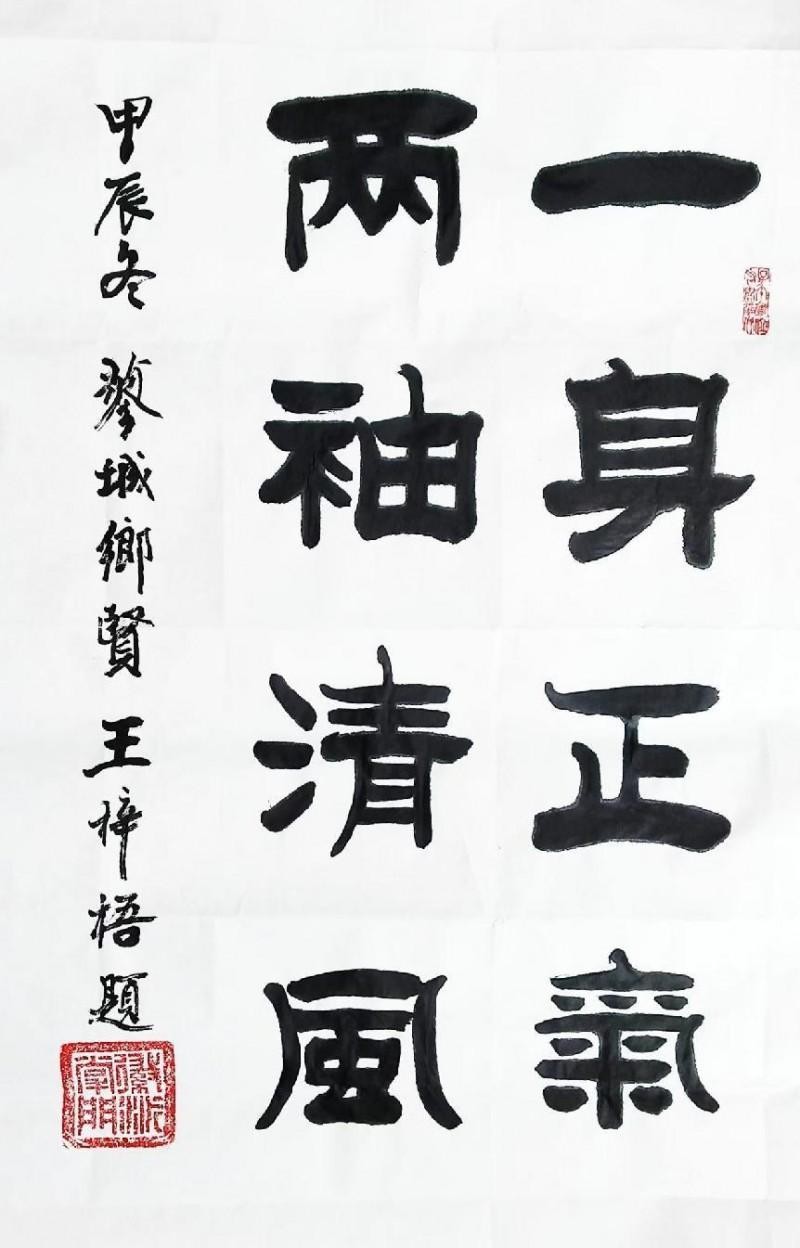 一身正氣
两袖清風
甲辰冬 蓼城鄉賢王梓梧題